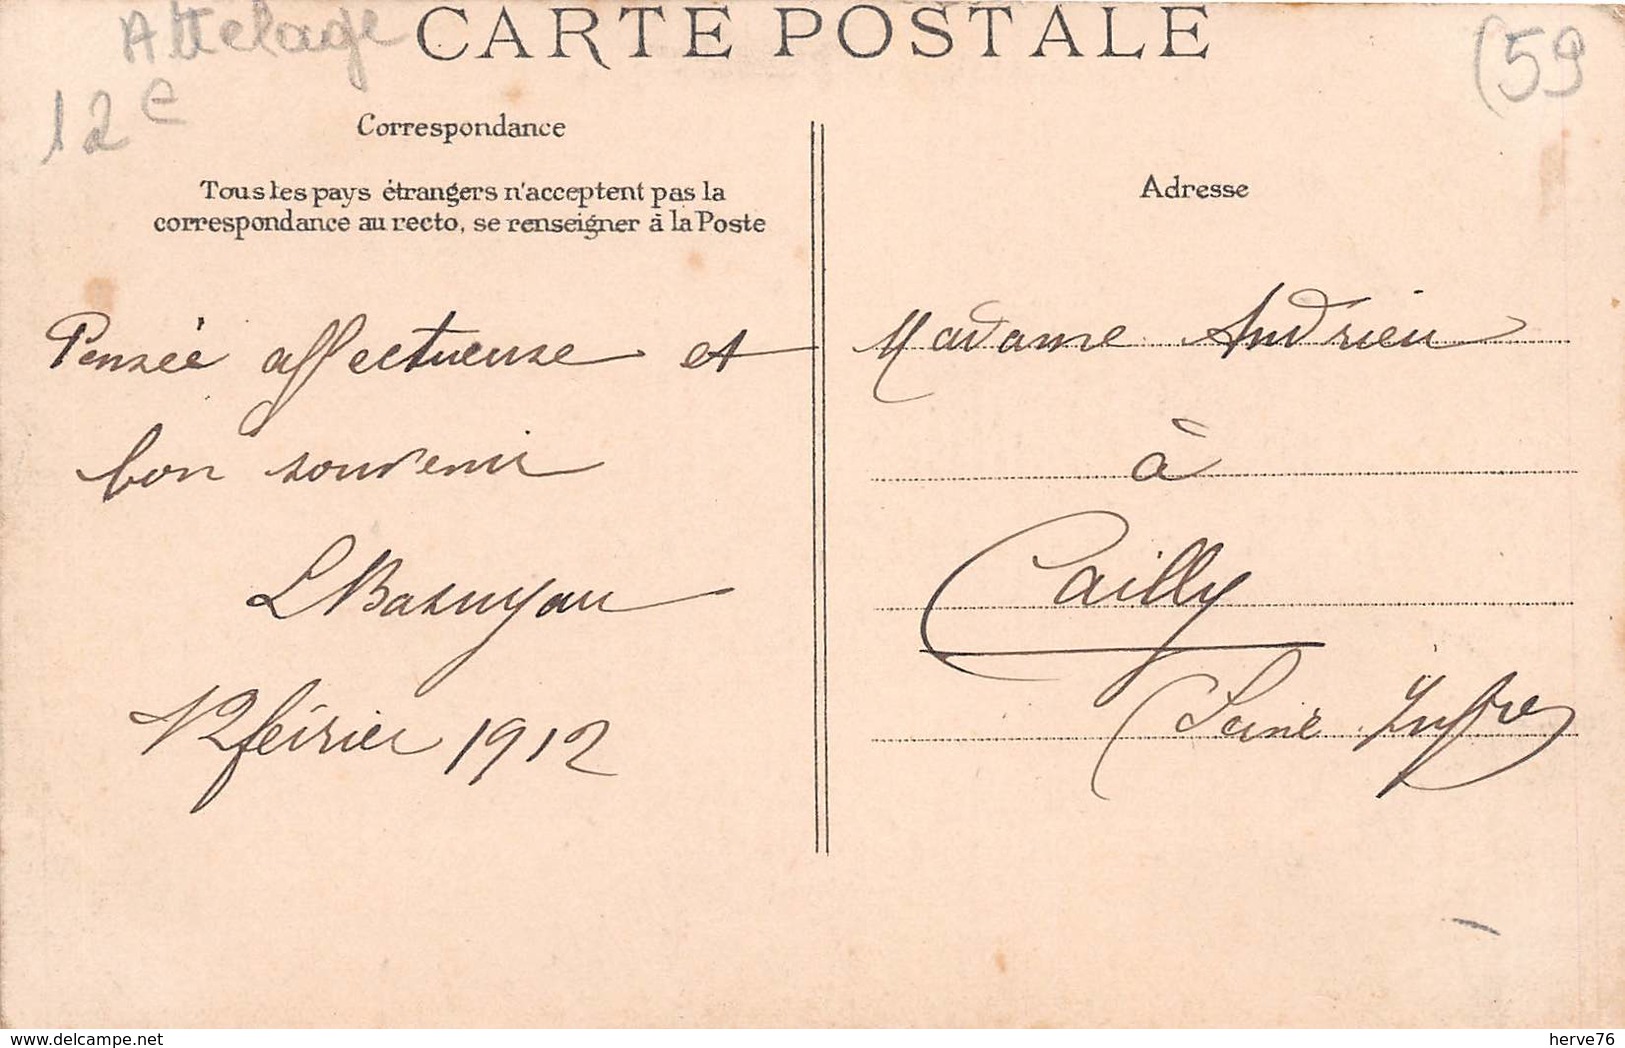 Attelage
12e
CARTE POSTALE
(59
Correspondance
Tous les pays étrangers n'acceptent pas la
correspondance au recto, se renseigner à la Poste
Pensée affectueuse et
bon souvenir
12 février 1912
Adresse
Madame Andrieu
à
Cailly
(Seine Infre)
delcampe.net
herve76